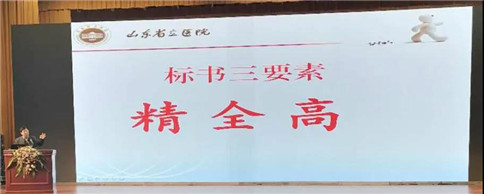 山东省立医院
标书三要素
精 全 高